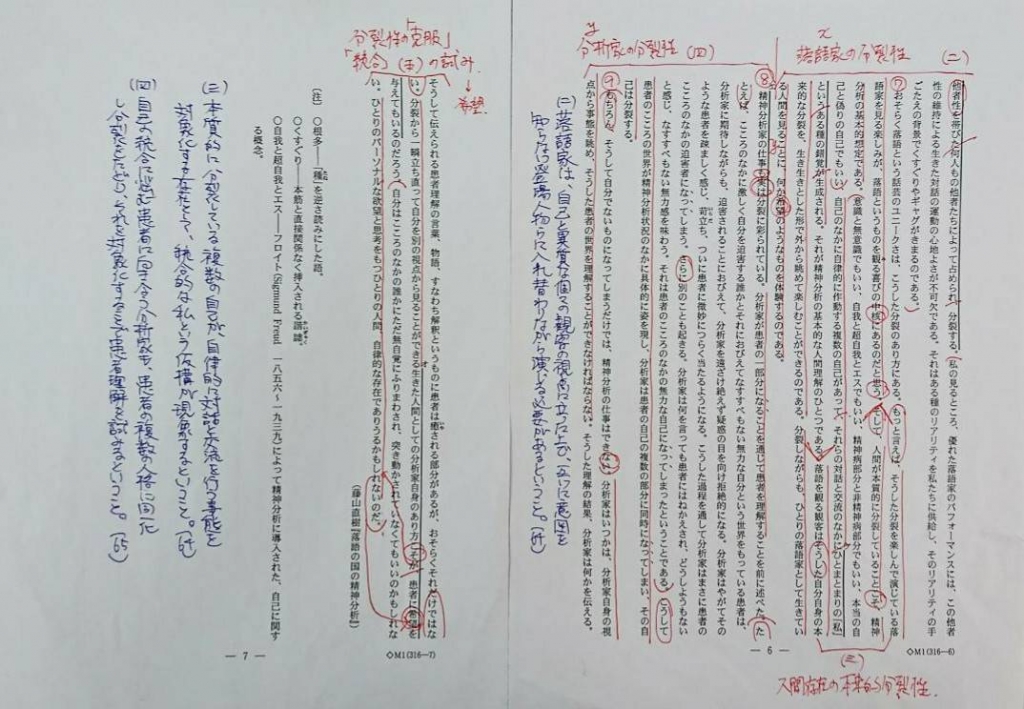 (二)
落語家の分裂性
分析家の分裂性 (四)
他者性を帯びた何人もの他者たちによって占められ、分裂する。私の見るところ、優れた落語家のパフォーマンスには、この他者
性の維持による生きた対話の運動の心地よさが不可欠である。それはある種のリアリティを私たちに供給し、そのリアリティの手
ごたえの背景でくすぐりやギャグがきまるのである。
⑦おそらく落語という話芸のユニークさは、こうした分裂のあり方にある。もっと言えば、そうした分裂を楽しんで演じている落
語家を見る楽しみが、落語というものを観る喜びの中核にあるのだと思う。そして、人間が本質的に分裂していることこそ、精神
分析の基本的想定である。意識と無意識でもいい、自我と超自我とエスでもいい、精神病部分と非精神病部分でもいい、本当の自
己と偽りの自己でもいい。自己のなかに自律的に作動する複数の自己があって、それらの対話と交流のなかにひとまとまりの「私」
というある種の錯覚が生成される。それが精神分析の基本的な人間理解のひとつである。落語を観る観客はそうした自分自身の本
来的な分裂を、生き生きとした形で外から眺めて楽しむことができるのである。分裂しながらも、ひとりの落語家として生きてい
る人間を見ることに、何か希望のようなものを体験するのである。
⑧精神分析家の仕事も実は分裂に彩られている。分析家が患者の一部分になることを通じて患者を理解することを前に述べた。た
とえば、こころのなかに激しく自分を迫害する誰かとそれにおびえてなすすべもない無力な自分という世界をもっている患者は、
分析家に期待しながらも、迫害されることにおびえて、分析家を遠ざけ絶えず疑惑の目を向け拒絶的になる。分析家はやがてその
ような患者を疎ましく感じ、苛立ち、ついに患者に微妙につらく当たるようになる。こうした過程を通して分析家はまさに患者の
こころのなかの迫害者になってしまう。さらに別のことも起きる。分析家は何を言っても患者にはねかえされ、どうしようもない
と感じ、なすすべもない無力感を味わう。それは患者のこころのなかの無力な自己になってしまったということである。こうして
患者のこころの世界が精神分析状況のなかに具体的に姿を現し、分析家は患者の自己の複数の部分に同時になってしまい、その自
己は分裂する。
⑨もちろん、そうして自分でないものになってしまうだけでは、精神分析の仕事はできない。分析家はいつかは、分析家自身の視
点から事態を眺め、そうした患者の世界を理解することができなければならない。そうした理解の結果、分析家は何かを伝える。
(三)
人間存在の本来的分裂性
(二)落語家は、自己と異質な個々の観客の視点に立った上で、互いに意図を
知らない登場人物らに入れ替わりながら演じる必要があるということ。
— 6 —
◇M1(316—6)
分裂性の「克服」
「統合」(ホ)の試み
→希望
そうして伝えられる患者理解の言葉、物語、すなわち解釈というものに患者は癒される部分があるが、おそらくそれだけではな
い。分裂から一瞬立ち直って自分を別の視点から見ることができる生きた人間としての分析家自身のあり方こそが、患者に希望を
与えてもいるのだろう。自分はこころのなかの誰かにただ無自覚にふりまわされ、突き動かされていなくてもいいのかもしれな
い。ひとりのパーソナルな欲望と思考をもつひとりの人間、自律的な存在でありうるかもしれないのだ。
(藤山直樹『落語の国の精神分析』)
〔注〕
○根多——「種」を逆さ読みにした語。
○くすぐり——本筋と直接関係なく挿入される諧謔。
○自我と超自我とエス——フロイト(Sigmund Freud 一八五六〜一九三九)によって精神分析に導入された、自己に関す
る概念。
(三)本質的に分裂している複数の自己が、自律的に対話と交流を行う事態を
対象化する存在として、統合的な私という仮構が現象するということ。
(四)自己の統合に悩む患者に向き合う分析家も、患者の複数の人格に同一化
し分裂をたどり、それを対象化することで患者理解を試みるということ。(65)
— 7 —
◇M1(316—7)